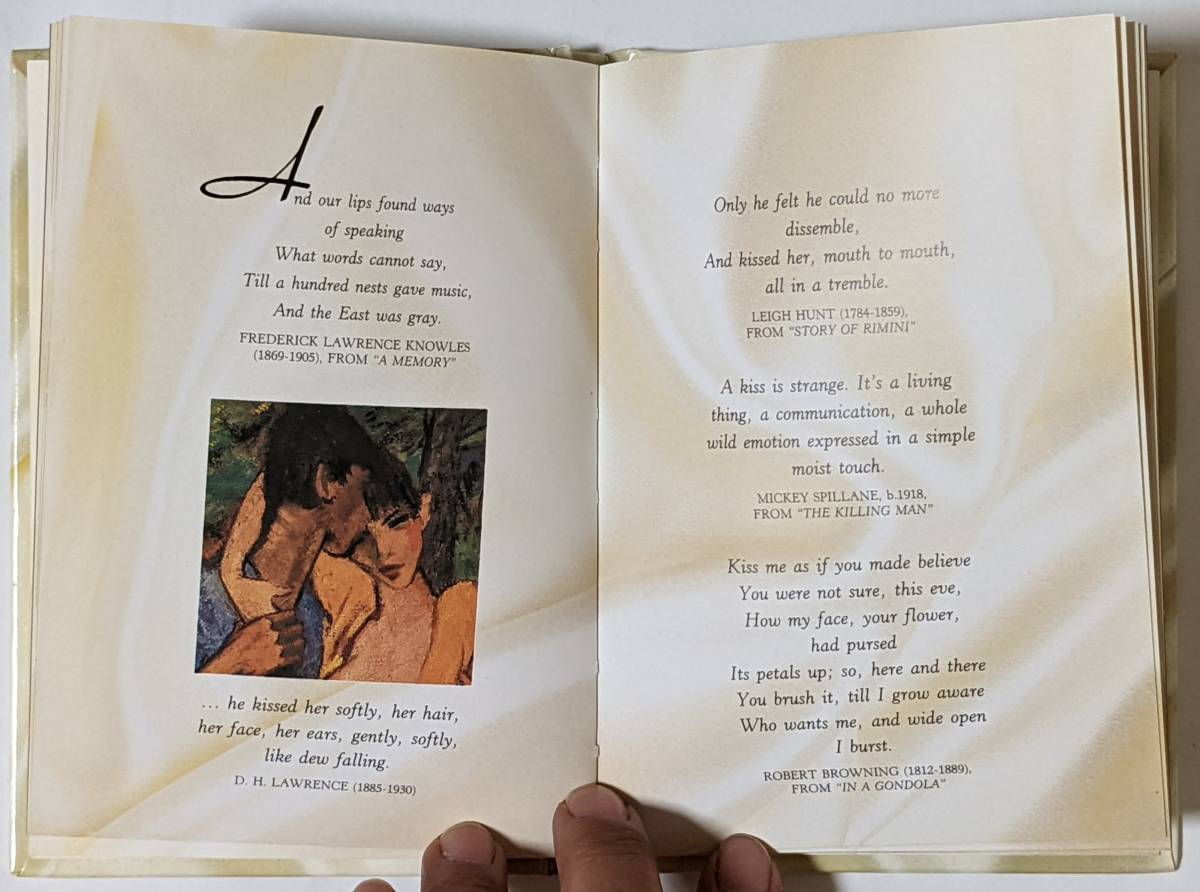 And our lips found ways
of speaking
What words cannot say,
Till a hundred nests gave music,
And the East was gray.
FREDERICK LAWRENCE KNOWLES
(1869-1905), FROM "A MEMORY"
... he kissed her softly, her hair,
her face, her ears, gently, softly,
like dew falling.
D. H. LAWRENCE (1885-1930)
Only he felt he could no more
dissemble,
And kissed her, mouth to mouth,
all in a tremble.
LEIGH HUNT (1784-1859),
FROM "STORY OF RIMINI"
A kiss is strange. It's a living
thing, a communication, a whole
wild emotion expressed in a simple
moist touch.
MICKEY SPILLANE, b.1918,
FROM "THE KILLING MAN"
Kiss me as if you made believe
You were not sure, this eve,
How my face, your flower,
had pursed
Its petals up; so, here and there
You brush it, till I grow aware
Who wants me, and wide open
I burst.
ROBERT BROWNING (1812-1889),
FROM "IN A GONDOLA"